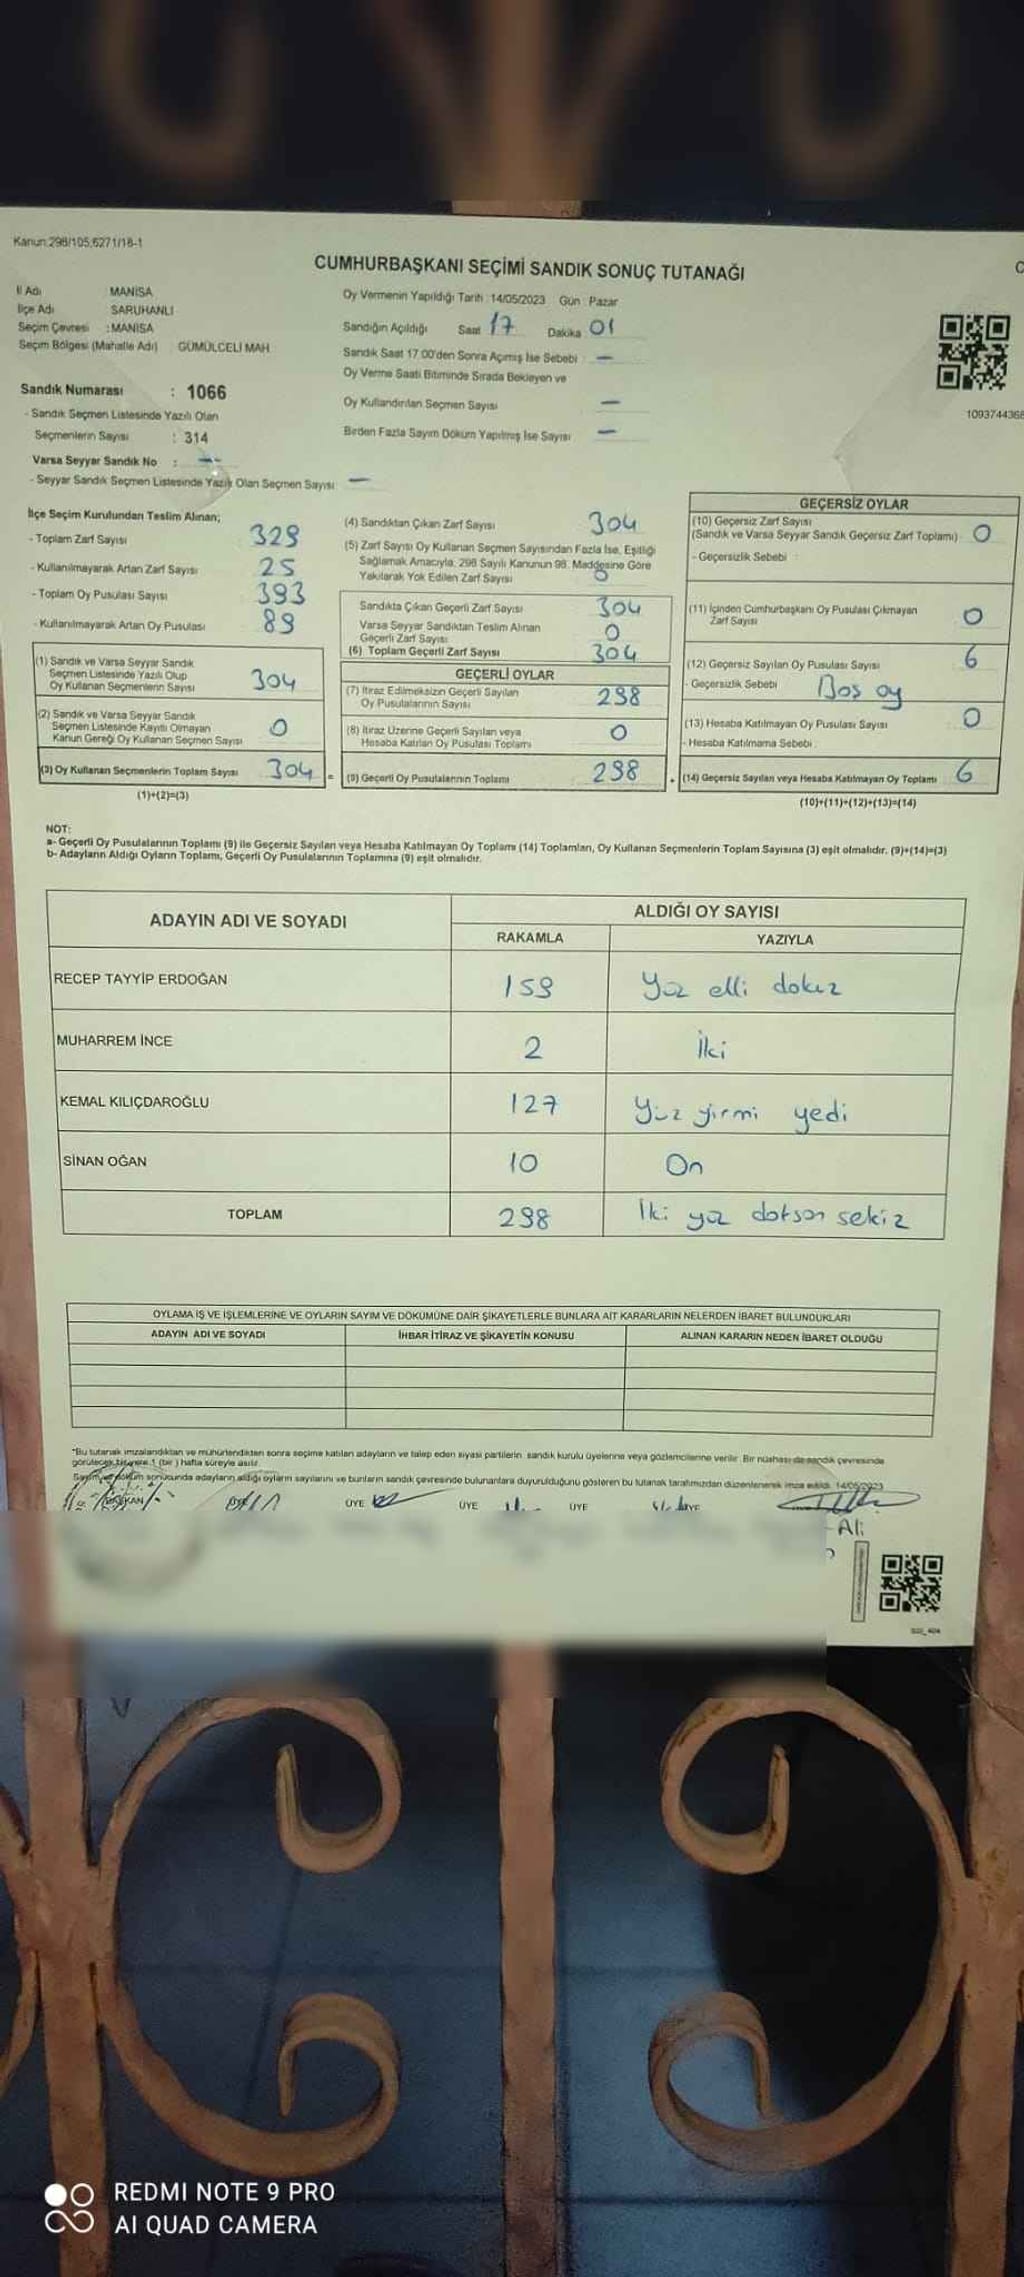 Kanun:298/105,6271/18-1
CUMHURBAŞKANI SEÇİMİ SANDIK SONUÇ TUTANAĞI
İl Adı MANİSA
İlçe Adı SARUHANLI
Seçim Çevresi : MANİSA
Seçim Bölgesi (Mahalle Adı) GÜMÜLCELİ MAH.
Sandık Numarası : 1066
- Sandık Seçmen Listesinde Yazılı Olan
Seçmenlerin Sayısı : 314
Varsa Seyyar Sandık No : --
- Seyyar Sandık Seçmen Listesinde Yazılı Olan Seçmen Sayısı —
Oy Vermenin Yapıldığı Tarih : 14/05/2023 Gün : Pazar
Sandığın Açıldığı Saat 17 Dakika 01
Sandık Saat 17:00'den Sonra Açımış İse Sebebi : —
Oy Verme Saati Bitiminde Sırada Bekleyen ve
Oy Kullandırılan Seçmen Sayısı —
Birden Fazla Sayım Döküm Yapılmış İse Sayısı —
1093744368
İlçe Seçim Kurulundan Teslim Alınan;
- Toplam Zarf Sayısı 329
- Kullanılmayarak Artan Zarf Sayısı 25
- Toplam Oy Pusulası Sayısı 393
- Kullanılmayarak Artan Oy Pusulası 89
(1) Sandık ve Varsa Seyyar Sandık
Seçmen Listesinde Yazılı Olup
Oy Kullanan Seçmenlerin Sayısı 304
(2) Sandık ve Varsa Seyyar Sandık
Seçmen Listesinde Kayıtlı Olmayan
Kanun Gereği Oy Kullanan Seçmen Sayısı 0
(3) Oy Kullanan Seçmenlerin Toplam Sayısı 304 =
(1)+(2)=(3)
(4) Sandıktan Çıkan Zarf Sayısı 304
(5) Zarf Sayısı Oy Kullanan Seçmen Sayısından Fazla İse, Eşitliği
Sağlamak Amacıyla, 298 Sayılı Kanunun 98. Maddesine Göre
Yakılarak Yok Edilen Zarf Sayısı 0
Sandıkta Çıkan Geçerli Zarf Sayısı 304
Varsa Seyyar Sandıktan Teslim Alınan
Geçerli Zarf Sayısı 0
(6) Toplam Geçerli Zarf Sayısı 304
GEÇERLİ OYLAR
(7) İtiraz Edilmeksizin Geçerli Sayılan
Oy Pusulalarının Sayısı 298
(8) İtiraz Üzerine Geçerli Sayılan veya
Hesaba Katılan Oy Pusulası Toplamı 0
(9) Geçerli Oy Pusulalarının Toplamı 298 +
GEÇERSİZ OYLAR
(10) Geçersiz Zarf Sayısı
(Sandık ve Varsa Seyyar Sandık Geçersiz Zarf Toplamı) 0
- Geçersizlik Sebebi :
(11) İçinden Cumhurbaşkanı Oy Pusulası Çıkmayan
Zarf Sayısı 0
(12) Geçersiz Sayılan Oy Pusulası Sayısı 6
- Geçersizlik Sebebi Boş oy
(13) Hesaba Katılmayan Oy Pusulası Sayısı 0
- Hesaba Katılmama Sebebi
(14) Geçersiz Sayılan veya Hesaba Katılmayan Oy Toplamı 6
(10)+(11)+(12)+(13)=(14)
NOT:
a- Geçerli Oy Pusulalarının Toplamı (9) ile Geçersiz Sayılan veya Hesaba Katılmayan Oy Toplamı (14) Toplamları, Oy Kullanan Seçmenlerin Toplam Sayısına (3) eşit olmalıdır. (9)+(14)=(3)
b- Adayların Aldığı Oyların Toplamı, Geçerli Oy Pusulalarının Toplamına (9) eşit olmalıdır.
ADAYIN ADI VE SOYADI ALDIĞI OY SAYISI
RAKAMLA YAZIYLA
RECEP TAYYİP ERDOĞAN 159 Yüz elli dokuz
MUHARREM İNCE 2 İki
KEMAL KILIÇDAROĞLU 127 Yüz yirmi yedi
SİNAN OĞAN 10 On
TOPLAM 298 İki yüz doksan sekiz
OYLAMA İŞ VE İŞLEMLERİNE VE OYLARIN SAYIM VE DÖKÜMÜNE DAİR ŞİKAYETLERLE BUNLARA AİT KARARLARIN NELERDEN İBARET BULUNDUKLARI
ADAYIN ADI VE SOYADI İHBAR İTİRAZ VE ŞİKAYETİN KONUSU ALINAN KARARIN NEDEN İBARET OLDUĞU
*Bu tutanak imzalandıktan ve mühürlendikten sonra seçime katılan adayların ve talep eden siyasi partilerin sandık kurulu üyelerine veya gözlemcilerine verilir. Bir nüshası da sandık çevresinde
görülecek bir yere 1 (bir) hafta süreyle asılır.
Sayım ve döküm sonucunda adayların aldığı oyların sayılarını ve bunların sandık çevresinde bulunanlara duyurulduğunu gösteren bu tutanak tarafımızdan düzenlenerek imza edildi. 14/05/2023
BAŞKAN ÜYE ÜYE ÜYE ÜYE ÜYE
Ali
REDMI NOTE 9 PRO
AI QUAD CAMERA